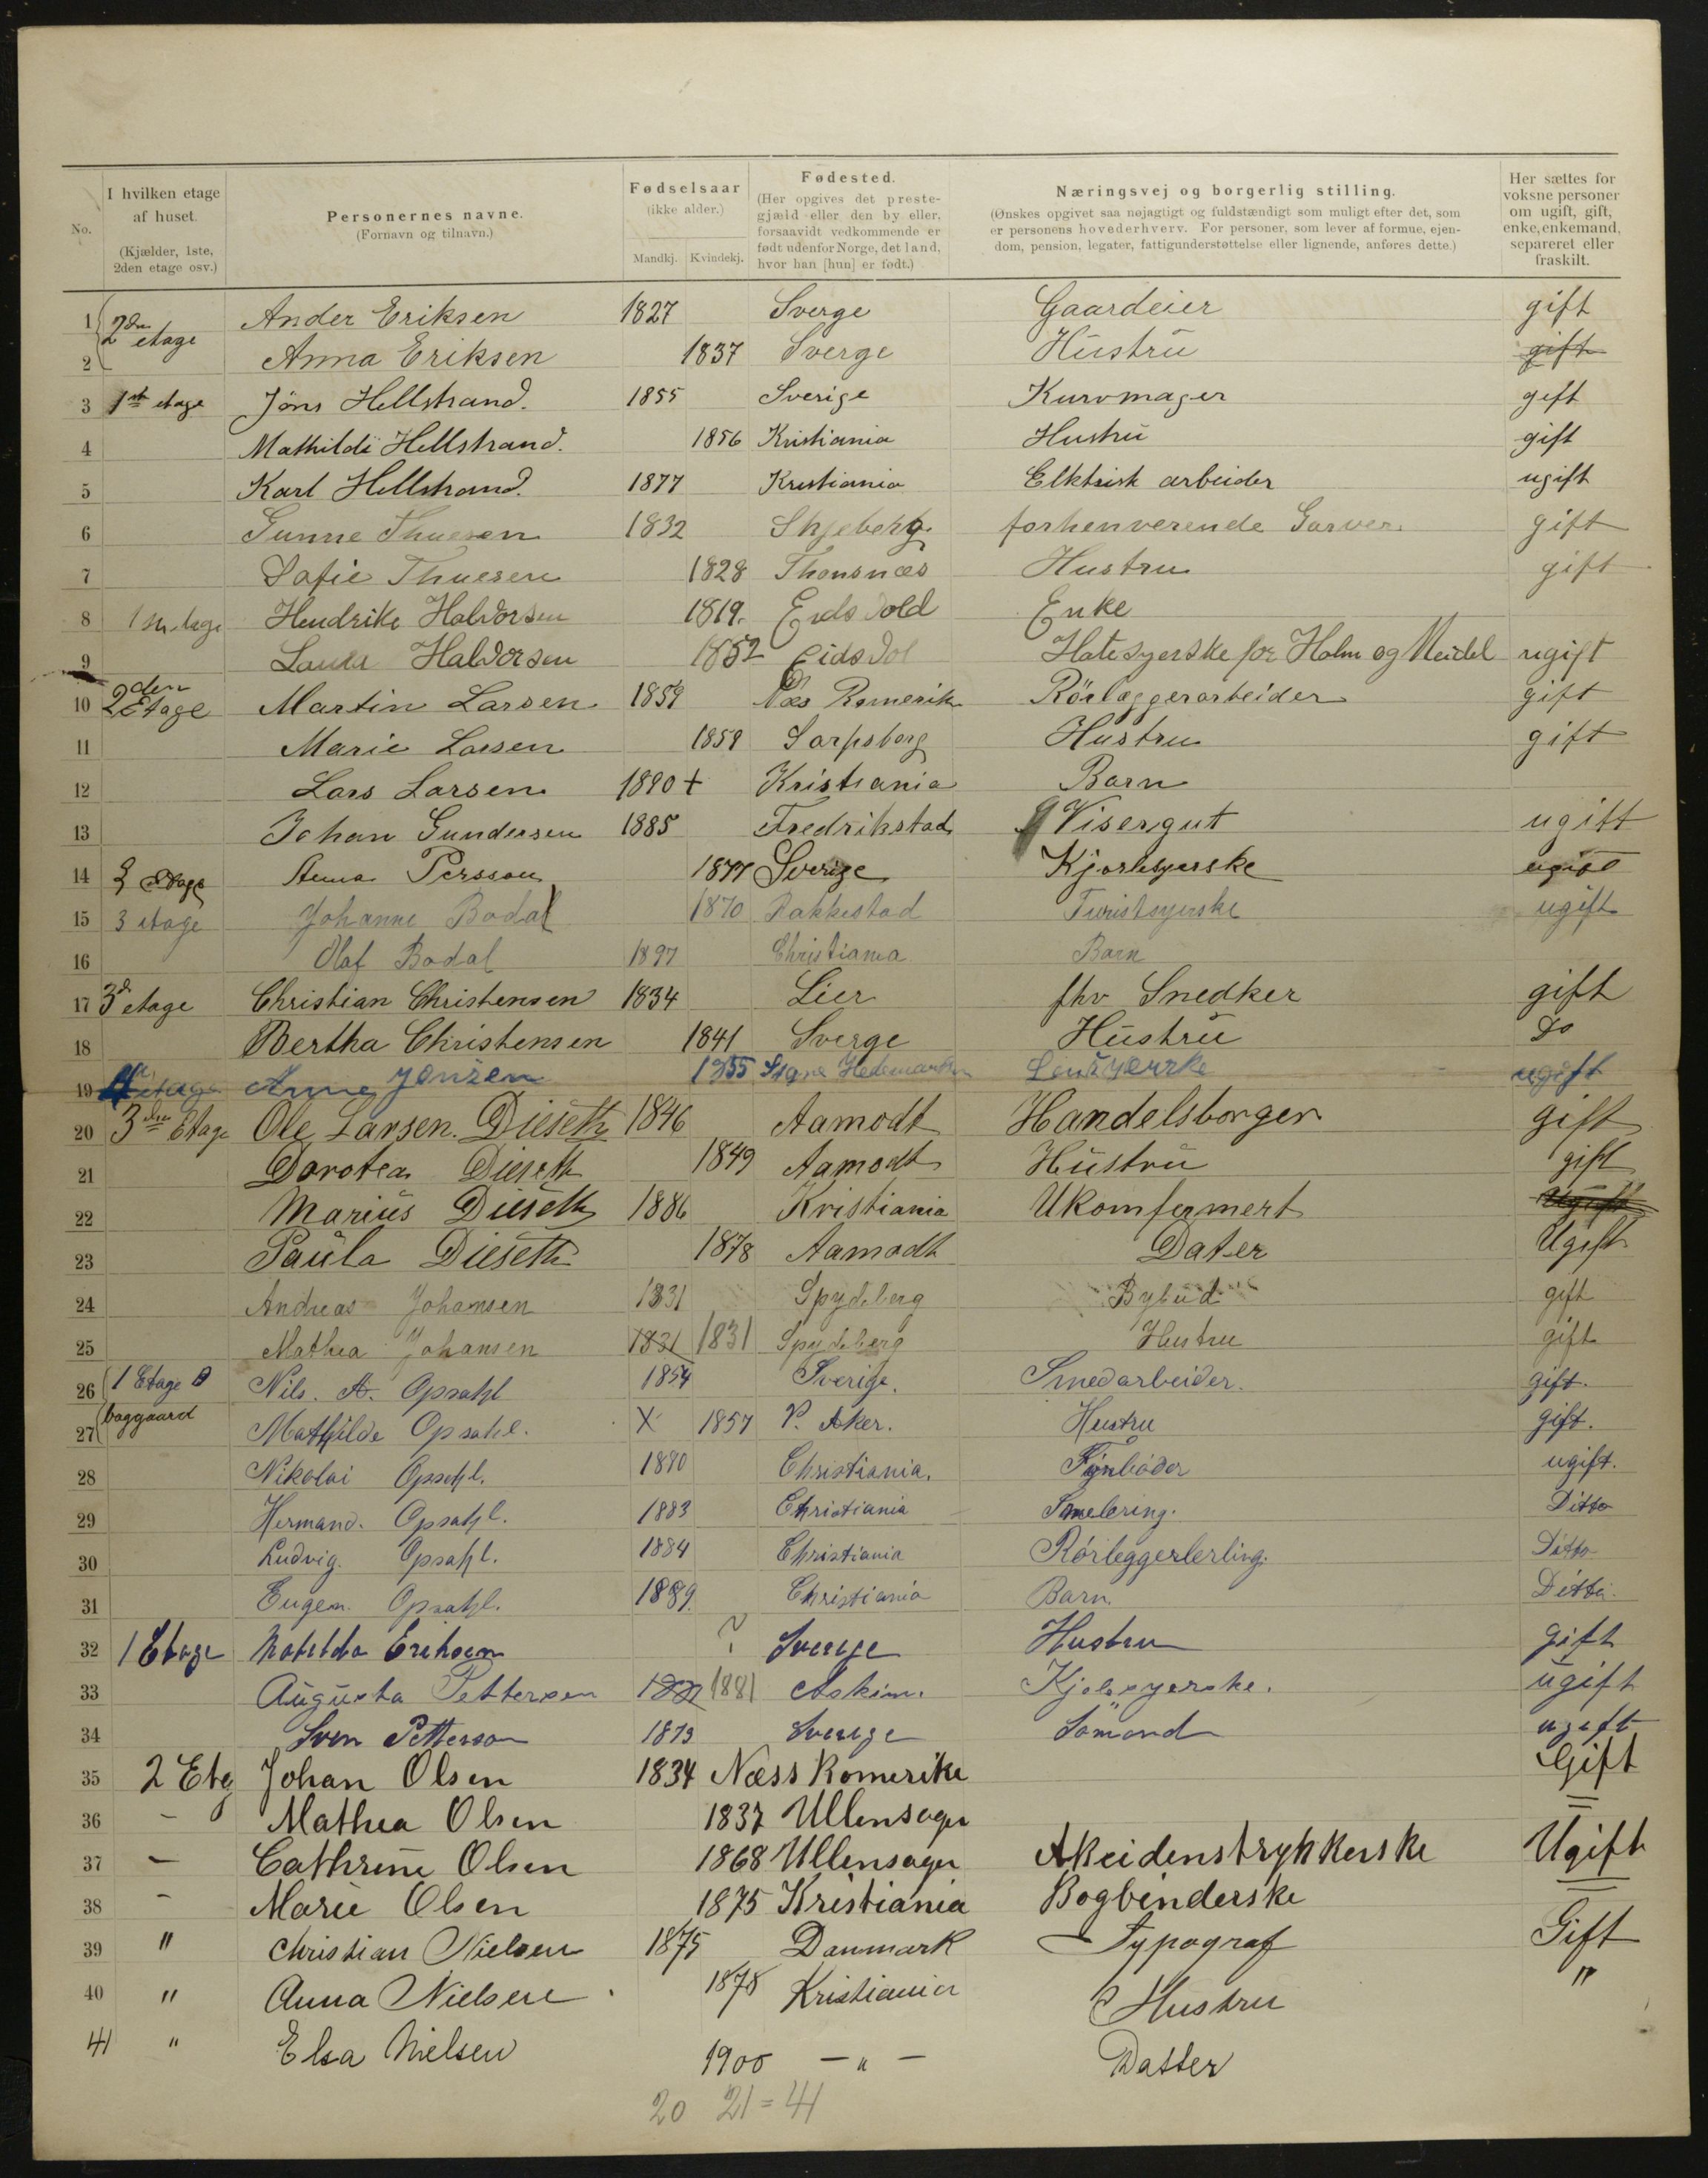 No.
I hvilken etage af huset. (Kjælder, 1ste, 2den etage osv.)
Personernes navne. (Fornavn og tilnavn.)
Fødselsaar (ikke alder.)
Mandkj. Kvindekj.
Fødested. (Her opgives det prestegjæld eller den by eller, forsaavidt vedkommende er født udenfor Norge, det land, hvor han [hun] er født.)
Næringsvej og borgerlig stilling.
(Ønskes opgivet saa nøjagtigt og fuldstændigt som muligt efter det, som er personens hovederhverv. For personer, som lever af formue, ejendom, pension, legater, fattigunderstøttelse eller lignende, anføres dette.)
Her sættes for voksne personer om ugift, gift, enke, enkemand, separeret eller fraskilt.
1 2den etage Ander Eriksen 1827 Sverge Gaardeier gift
2 Anna Eriksen 1837 Sverge Hustru gift
3 1st etage Jöns Hellstrand. 1855 Sverige Kurvmager gift
4 Mathilde Hellstrand. 1856 Kristiania Hustru gift
5 Karl Hellstrand. 1877 Kristiania Elktrisk arbeider ugift
6 Gunne Thuesen 1832 Skjeberg. forhenverende Garver gift
7 Sofie Thuesen 1828 Thonsnæs Hustru gift
8 Hendrike Halvorsen 1819. Eidsvold Enke
9 Laura Halvorsen 1852 Eidsvol Hatesyerske for Holm og Meidel ugift
10 2den Etage Martin Larsen 1859 Næs Romerik Rörlæggerarbeider gift
11 Marie Larsen 1859 Sarpsborg Hustru gift
12 Lars Larsen 1890 + Kristiania Barn
13 Johan Gundersen 1885 Fredrikstad Visergut ugift
14 3 Etage Anna Persson 1877 Sverige Kjorlesyerske ugift
15 3 etage Johanne Bodal 1870 Rakkestad Turistsyerske ugift
16 Olaf Bodal 1897 Christiania Barn
17 3d etage Christian Christensen 1834 Lier fhv Snedker gift
18 Bertha Christensen 1841 Sverge Hustru Do
19 etage Anne Jensen 1855 Hedemarken ugift
20 3den Etage Ole Larsen. Dieseth 1846 Aamodt Handelsborger gift
21 Dorotea Dieseth 1849 Aamodt Hustru gift
22 Marius Dieseth 1886 Kristiania Ukomfermert Ugift
23 Paula Dieseth 1878 Aamodt Dater Ugift
24 Andreas Johansen 1831 Spydeberg Bybud gift
25 Mathea Johansen 1831 1831 Spydeberg Hustru gift
26 1 Etage B Nils. A. Opsahl 1854 Sverige. Smedarbeider. gift.
27 baggaard Mathilde Opsahl. X 1857 V. Aker. Hustru gift.
28 Nikolai Opsahl. 1880 Christiania. Fyrbøder ugift.
29 Hermand. Opsahl. 1883 Christiania Smelering. Ditto
30 Ludvig. Opsahl. 1884 Christiania Rörleggerlerling. Ditto
31 Eugen. Opsahl. 1889. Christiania Barn. Ditto.
32 1 Etage Matelda Eriksen ? Sverige Hustru gift
33 Augusta Pettersen 1881 Askim. Kjolesyerske. ugift
34 Sven Petterson 1873 Sverige Sömand ugift
35 2 Etg Johan Olsen 1834 Næss Romerike Gift
36 - Mathea Olsen 1837 Ullensager =
37 - Cathrine Olsen 1868 Ullensager Akcidenstrykkerske Ugift
38 - Marie Olsen 1875 Kristiania Bogbinderske =
39 " Christian Nielsen 1875 Danmark Typograf Gift
40 " Anna Nielsen 1878 Kristiania Hustru "
41 " Elsa Nielsen 1900 - " - Datter
20 21 = 41